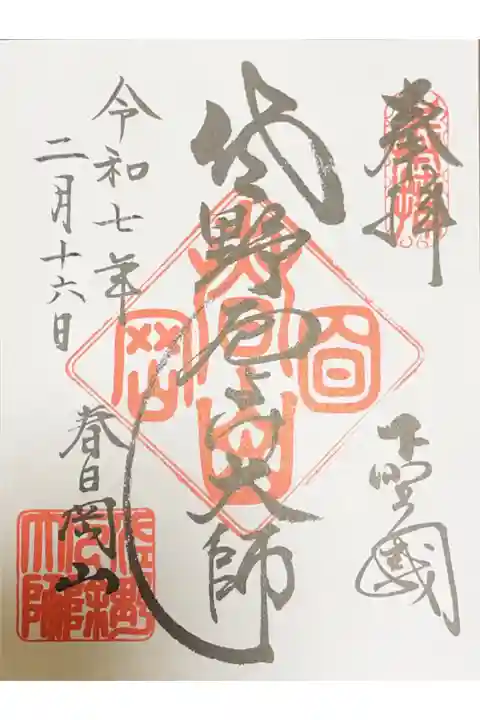 奉拝
下野國
佐野厄よけ大師
令和七年
二月十六日
春日岡山